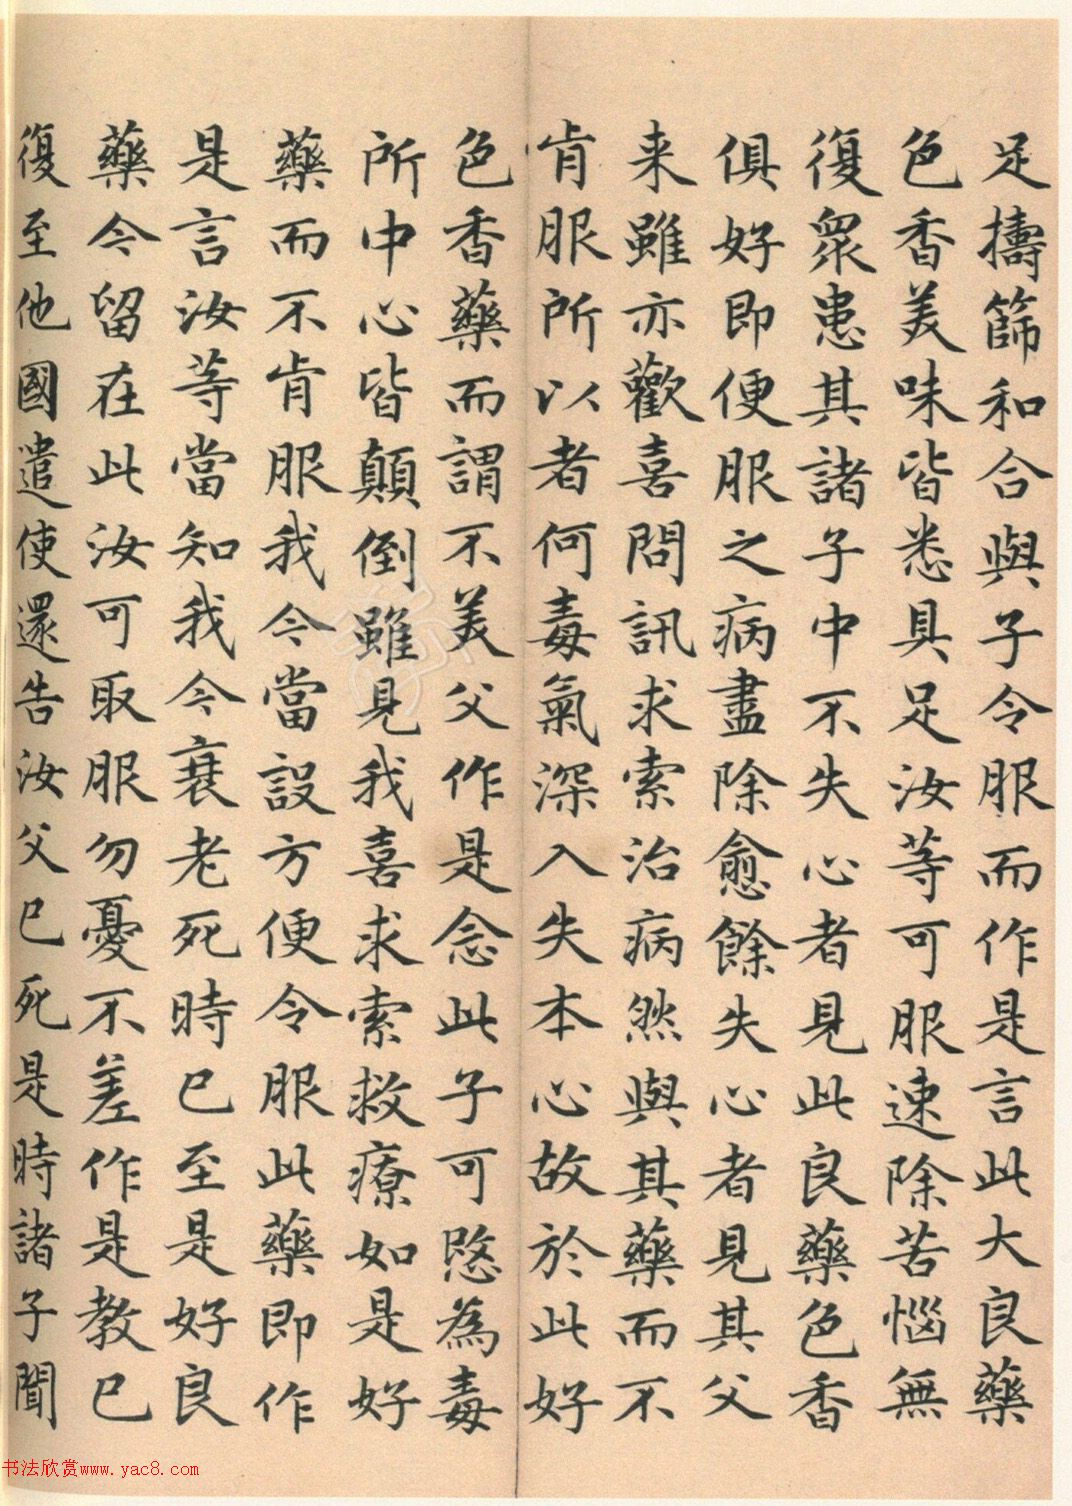 足擣篩和合與子令服而作是言此大良藥
色香美味皆悉具足汝等可服速除苦惱無
復衆患其諸子中不失心者見此良藥色香
俱好即便服之病盡除愈餘失心者見其父
来雖亦歡喜問訊求索治病然與其藥而不
肯服所以者何毒氣深入失本心故於此好
色香藥而謂不美父作是念此子可愍為毒
所中心皆顛倒雖見我喜求索救療如是好
藥而不肯服我今當設方便令服此藥即作
是言汝等當知我今衰老死時已至是好良
藥今留在此汝可取服勿憂不差作是教已
復至他國遣使還告汝父已死是時諸子聞
书法欣赏www.yac8.com